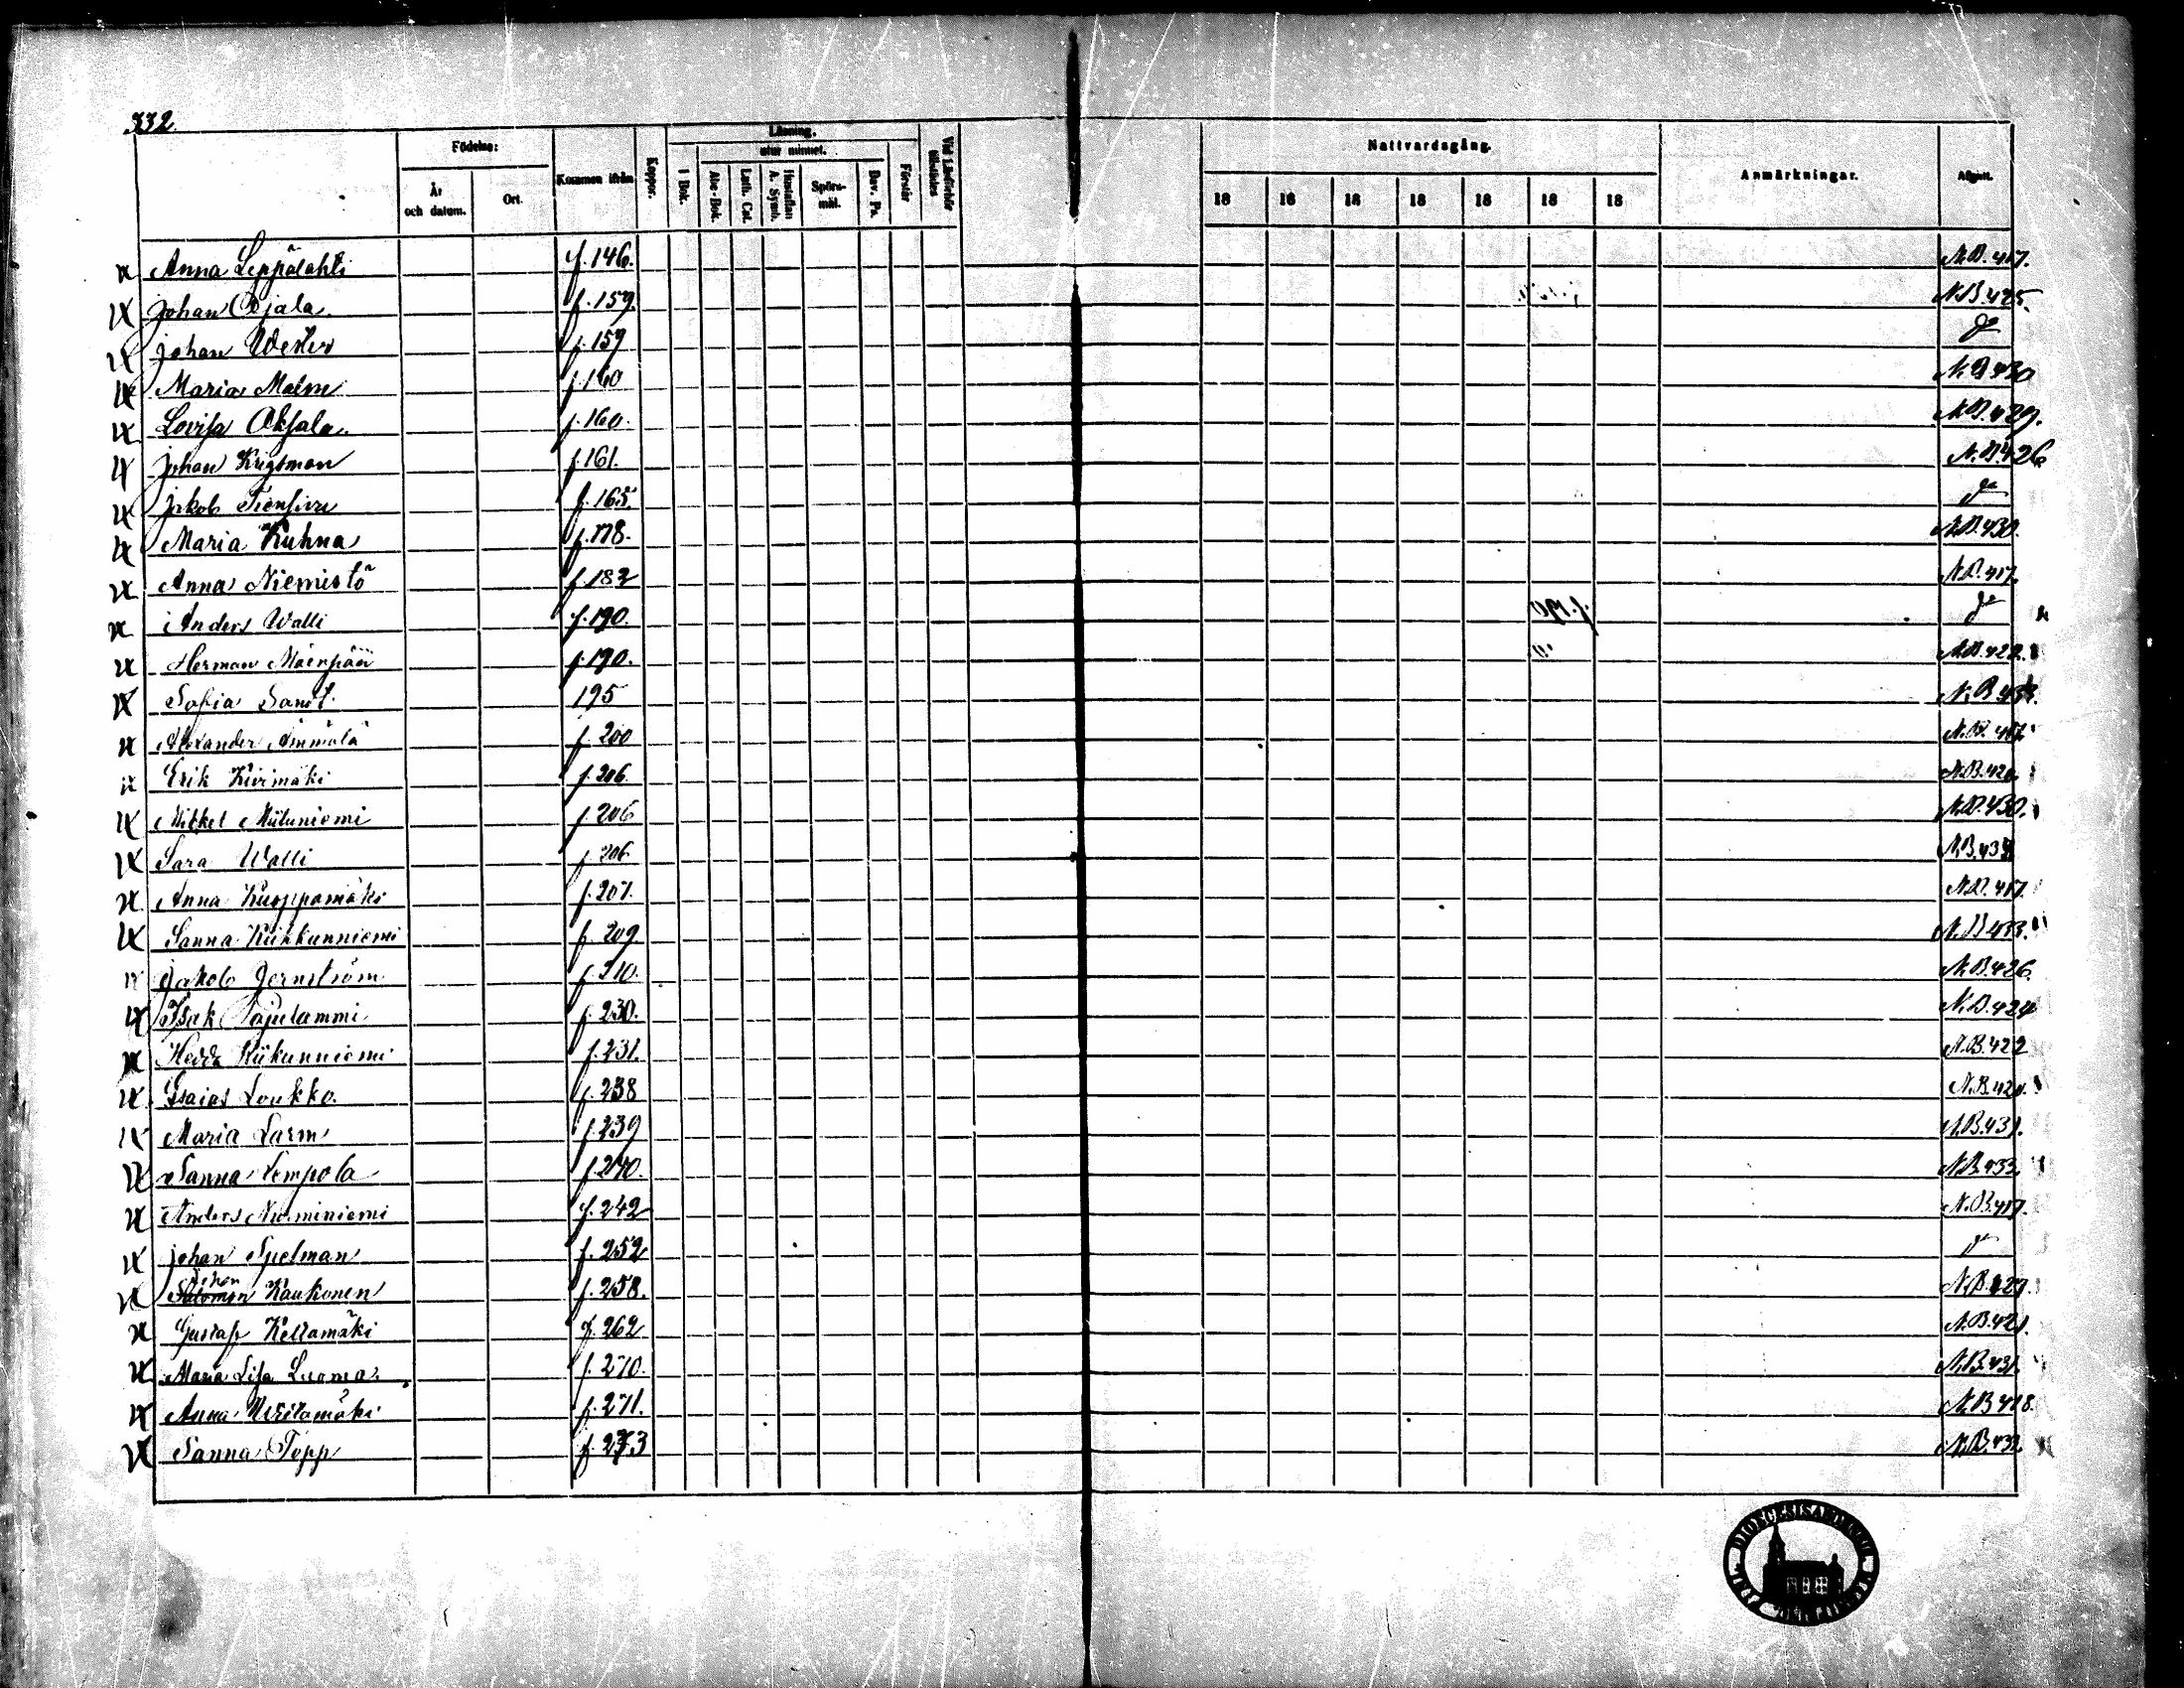 332
Födelse: Kommen ifrån Koppor. Läsning. Nattvardsgång. Anmärkningar. Afgått.
utur minnet.
År och datum. Ort. I Bok. Abc-Bok. Luth. Cat. Hustaflan A. Symb. Spörs-mål. Dav. Ps. Förstår 18 18 18 18 18 18 18
Anna Leppälahti f. 146. N.B. 417.
Johan Ojala f. 159. N.B. 425.
Johan Wester f. 159
Maria Malm f. 160 N.B. 430
Lovisa Oksala. f. 160. N.B. 429.
Johan Krigsman f. 161. N.B. 426
Jakob Tiensivu f. 165.
Maria Kuhna f. 178. N.B. 430.
Anna Niemistö f. 182 N.B. 417.
Anders Walli f. 190.
Herman Mäenpää f. 190. N.B. 422.
Sofia Sand. 195 N.B. 433.
Alexander Ämmälä f. 200 N.B. 417.
Erik Kivimäki f. 206. N.B. 420.
Mikkel Niituniemi f. 206 N.B. 430.
Sara Walli f. 206 N.B. 433
Anna Kuoppamäki f. 207. N.B. 417.
Sanna Kiikkunniemi f. 209 N.B. 433.
Jakob Jernström f. 210. N.B. 426.
Isak Pajulammi f. 230. N.B. 424
Hedda Kiikunniemi f. 231. N.B. 422
Esaias Loukko. f. 238 N.B. 420.
Maria Larm f. 239 N.B. 431.
Sanna Lempola f. 240. N.B. 433.
Anders Nieminiemi f. 242 N.B. 417.
Johan Spelman f. 252
Johan
Salomon Kaukonen f. 258. N.B. 427.
Gustaf Keltamäki f. 262 N.B. 421.
Maria Lisa Luoma. f. 270. N.B. 431.
Anna f. 271. N.B. 418.
Sanna Topp f. 273 N.B. 433.